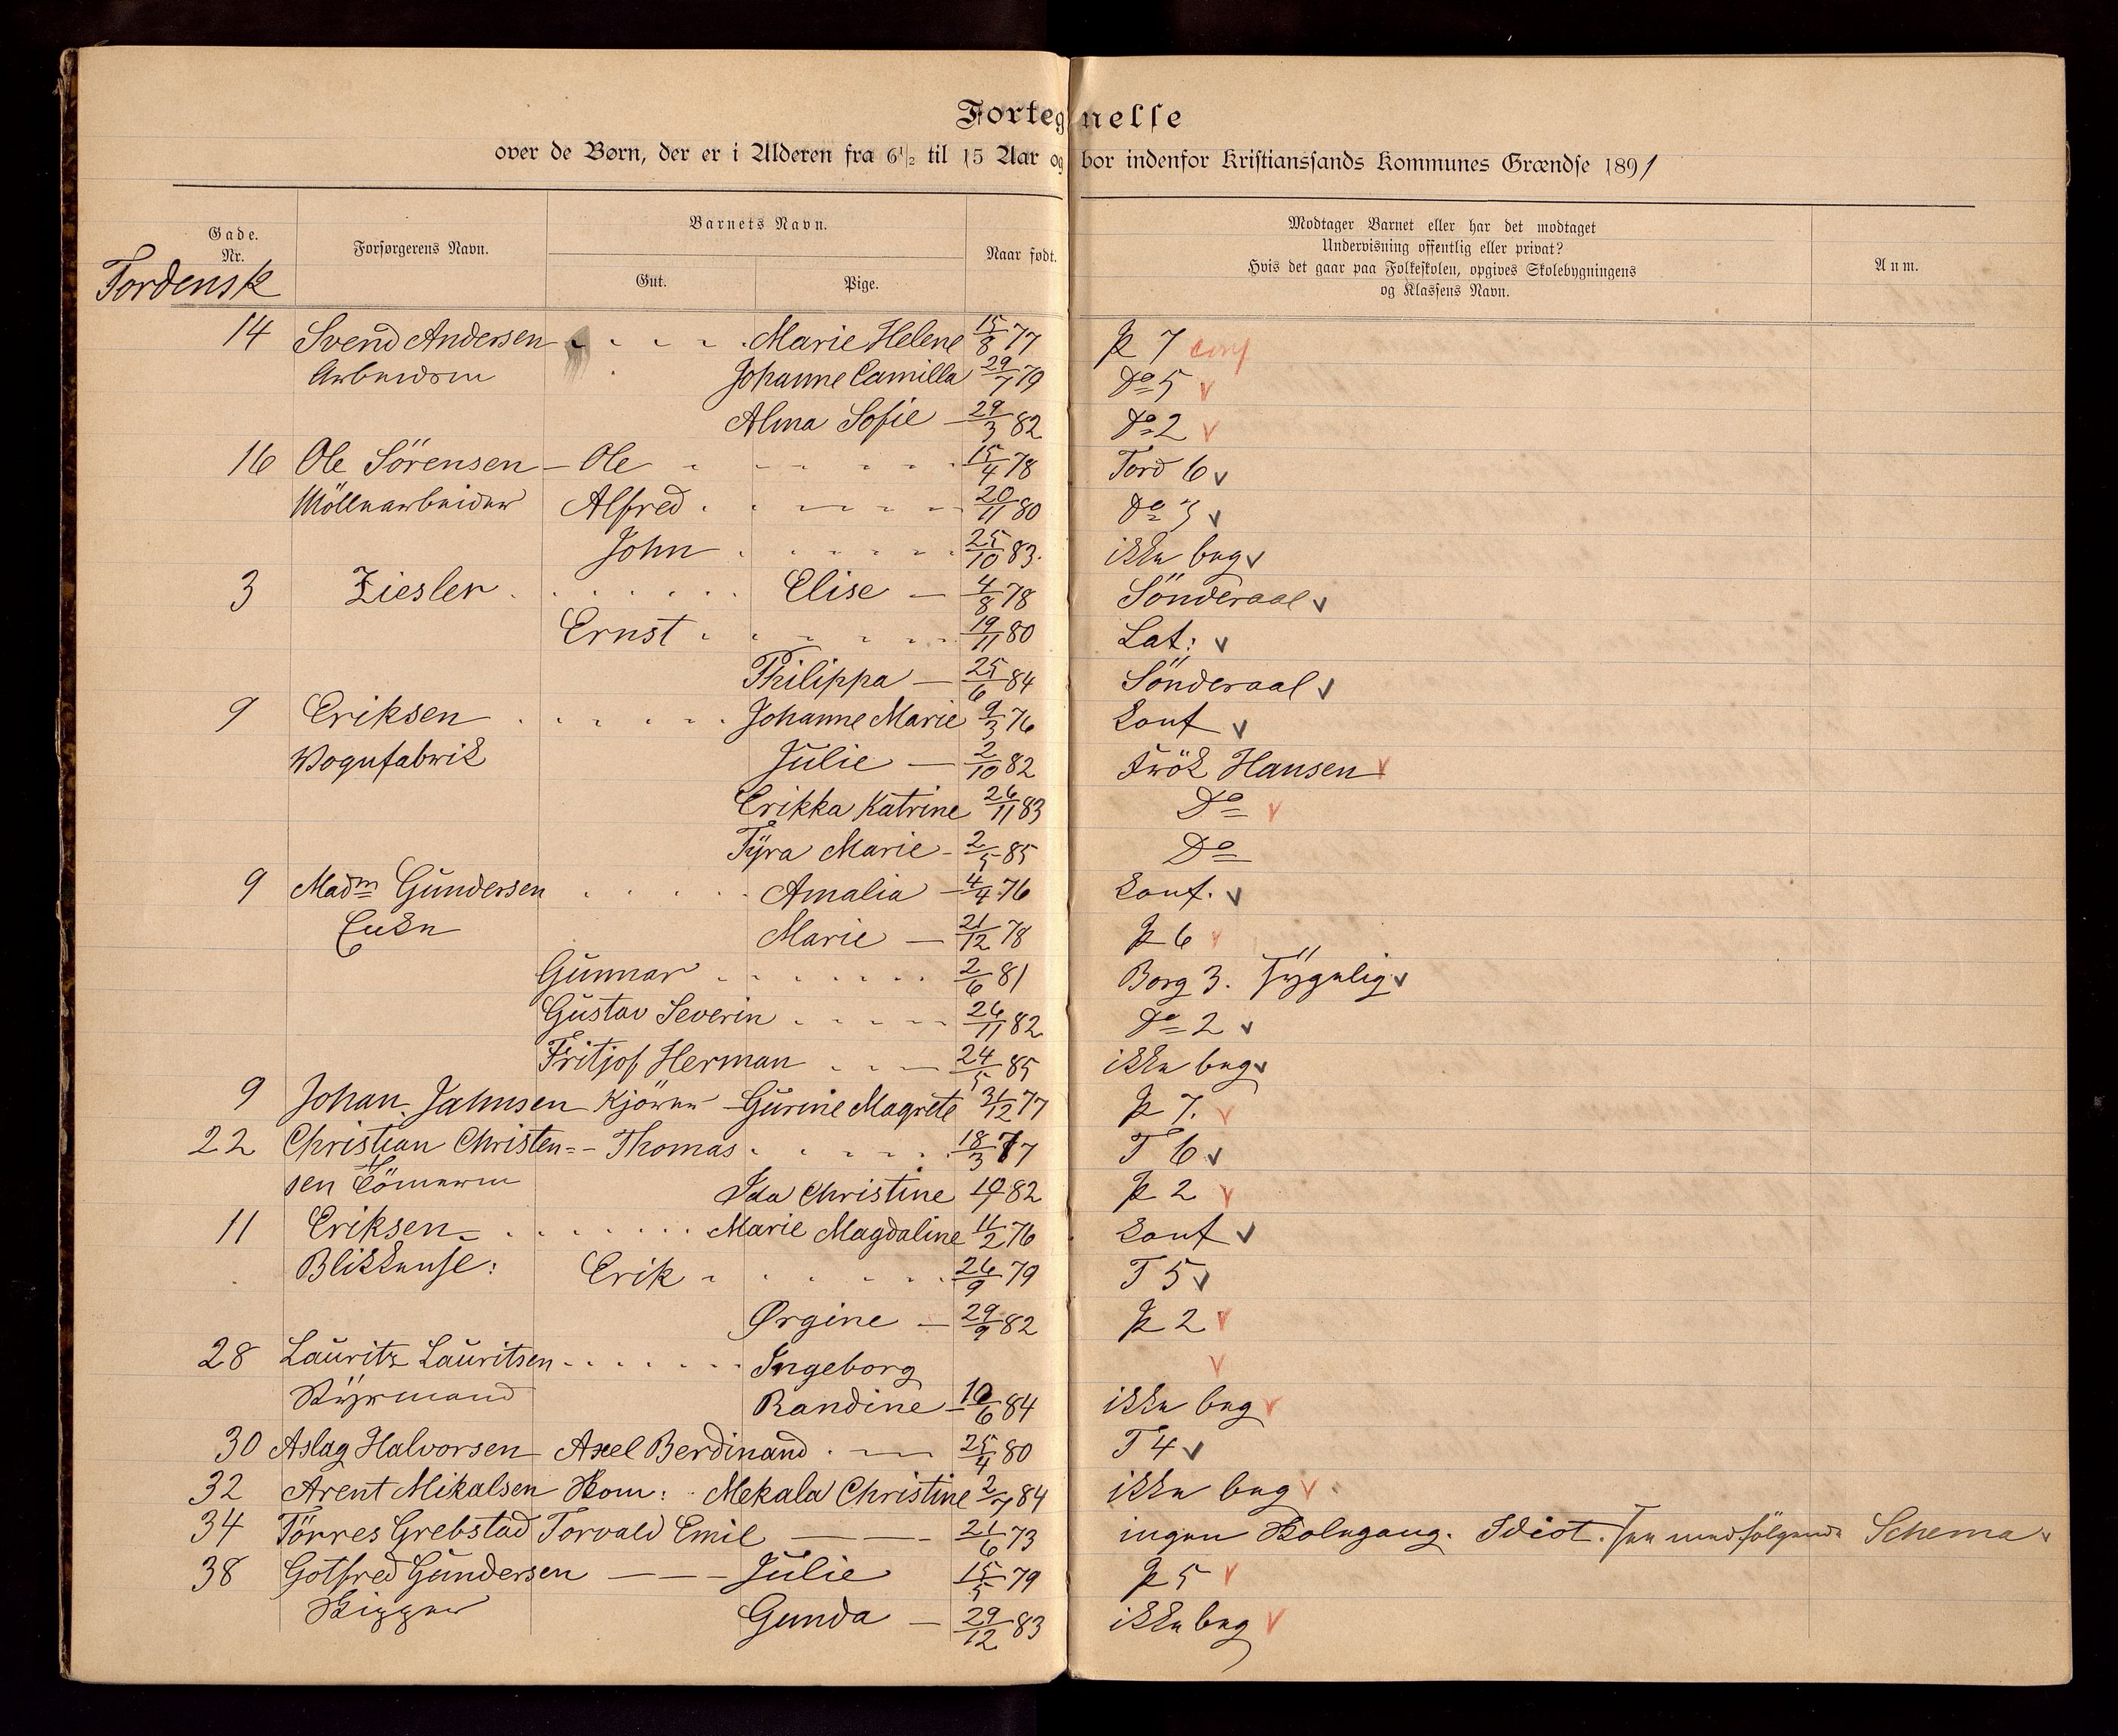 Fortegnelse
over de Børn, der er i Alderen fra 6 1/2 til 15 Aar og bor indenfor Kristianssands Kommunes Grændse 1891
Gade. Nr. Forsørgerens Navn. Barnets Navn. Gut. Pige. Naar født. Modtager Barnet eller har det modtaget Undervisning offentlig eller privat? Hvis det gaar paa Folkeskolen, opgives Skolebygningens og Klassens Navn. Anm.
Tordensk
14 Svend Andersen Marie Helene 15/8 77 P 7 conf
Arbeidsm Johanne Camilla 29/7 79 Do 5 v
Alma Sofie — 29/3 82 Do 2 v
16 Ole Sörensen — Ole 15/4 78 Tord 6 v
Möllearbeider Alfred 20/11 80 Do 3 v
John 25/10 83. ikke beg v
3 Ziesler Elise — 4/8 78 Sönderaal v
Ernst 19/11 80 Lat: v
Philippa — 25/6 84 Sönderaal v
9 Eriksen Johanne Marie 9/3 76 Konf v
Vognfabrik Julie — 2/10 82 Frök Hansen v
Erikka Katrine 26/11 83 Do v
Tÿra Marie - 2/5 85 Do
9 Madm Gundersen Amalia — 4/4 76 Konf. v
Enke Marie — 21/12 78 P 6 v
Gunnar 2/6 81 Borg 3. sygelig v
Gustav Severin 26/11 82 Do 2 v
Fritjof Herman 24/5 85 ikke beg v
9 Johan Jahnsen Kjörer — Gurine Magrete 31/12 77 P 7. v
22 Christian Christen= - Thomas 18/3 77 T 6 v
sen Tömerm Ida Christine 82 P 2 v
11 Eriksen Marie Magdaline 11/2 76 Konf v
Blikkensl: Erik 26/9 79 T 5 v
Ørgine — 29/9 82 P 2 v
28 Lauritz Lauritsen Ingeborg v
Styrmand Randine — 10/6 84 ikke beg v
30 Aslag Halvorsen Axel Berdinand 25/4 80 T 4 v
32 Arent Mikalsen Skom: Mekala Christine 2/7 84 ikke beg v
34 Törres Grebstad Torvald Emil — 21/6 73 ingen Skolegang. Idiot. se medfölgende Schema v
38 Gotfred Gundersen — Julie 15/5 79 P 5 v
Skipper Gunda — 29/12 83 ikke beg v